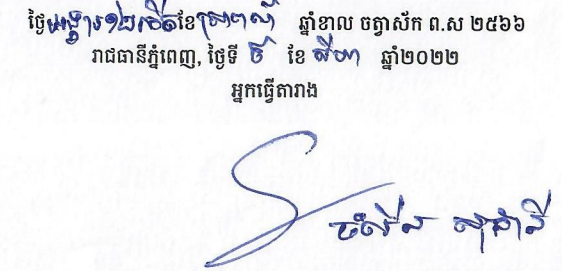 ថ្ងៃអង្គារ ១២កើត ខែស្រាពណ៍ ឆ្នាំខាល ចត្វាស័ក ព.ស ២៥៦៦
រាជធានីភ្នំពេញ, ថ្ងៃទី ៩ ខែ សីហា ឆ្នាំ២០២២
អ្នកធ្វើតារាង